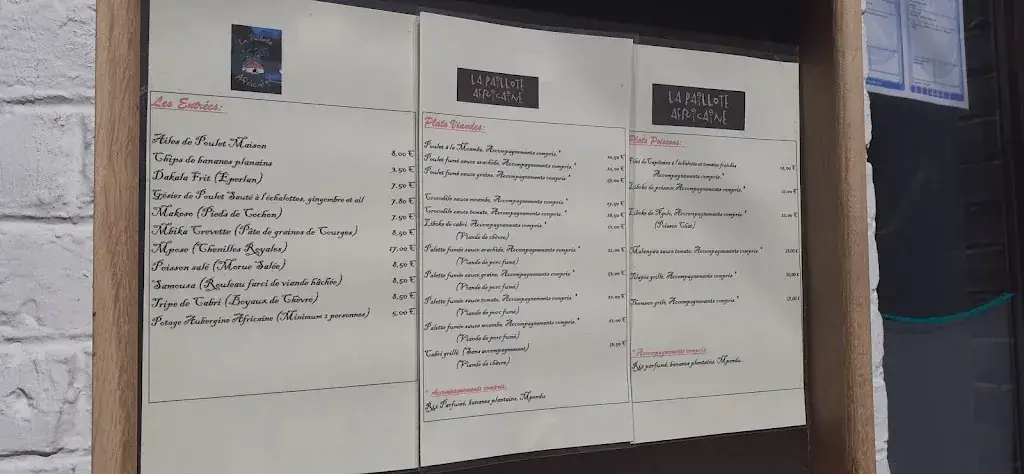 La Paillote
Africaine
Les Entrées:
Ailes de Poulet Maison 8,00 €
Chips de bananes planains 3,50 €
Dakala Frit (Eperlan) 7,50 €
Gésier de Poulet Sauté à l'échalottes, gingembre et ail 7,80 €
Makoso (Pieds de Cochon) 7,50 €
Mbika Crevette (Pâte de graines de Courges) 8,50 €
Mpose (Chenilles Royales) 17,00 €
Poisson salé (Morue Salée) 8,50 €
Samousa (Rouleau farci de viande hâchée) 8,50 €
Tripe de Cabri (Boyaux de Chèvre) 8,50 €
Potage Aubergine Africaine (Minimum 2 personnes) 5,00 €
LA PAILLOTE
AFRICAINE
Plats Viandes:
Poulet à la Moambe, Accompagnements compris.*
Poulet fumé sauce arachide, Accompagnements compris.*
Poulet fumé sauce graine, Accompagnements compris.*
Crocodile sauce moambe, Accompagnements compris.*
Crocodile sauce tomate, Accompagnements compris.*
Liboke de cabri, Accompagnements compris.*
(Viande de chèvre)
Palette fumée sauce arachide, Accompagnements compris.* 22,00 €
(Viande de porc fumé)
Palette fumée sauce graine, Accompagnements compris.* 23,00 €
(Viande de porc fumé)
Palette fumée sauce tomate, Accompagnements compris.* 20,00 €
(Viande de porc fumé)
Palette fumée sauce moambe, Accompagnements compris.* 22,00 €
(Viande de porc fumé)
Cabri grillé. (Sans accompagnement) 18,50 €
(Viande de chèvre)
* Accompagnements compris:
Riz Parfumé, bananes plantains, Mpondu
LA PAILLOTE
AFRICAINE
Plats Poissons:
Filet de Capitaine à l'échalotte et tomates fraîches
Accompagnements compris.*
Liboke de poisson, Accompagnements compris.*
Liboke de Ngolo, Accompagnements compris.*
(Poisson Chat)
Malangwa sauce tomate, Accompagnements compris.*
Tilapia grillé, Accompagnements compris.*
Thomson grillé, Accompagnements compris.*
* Accompagnements compris:
Riz parfumé, bananes plantains, Mpondu